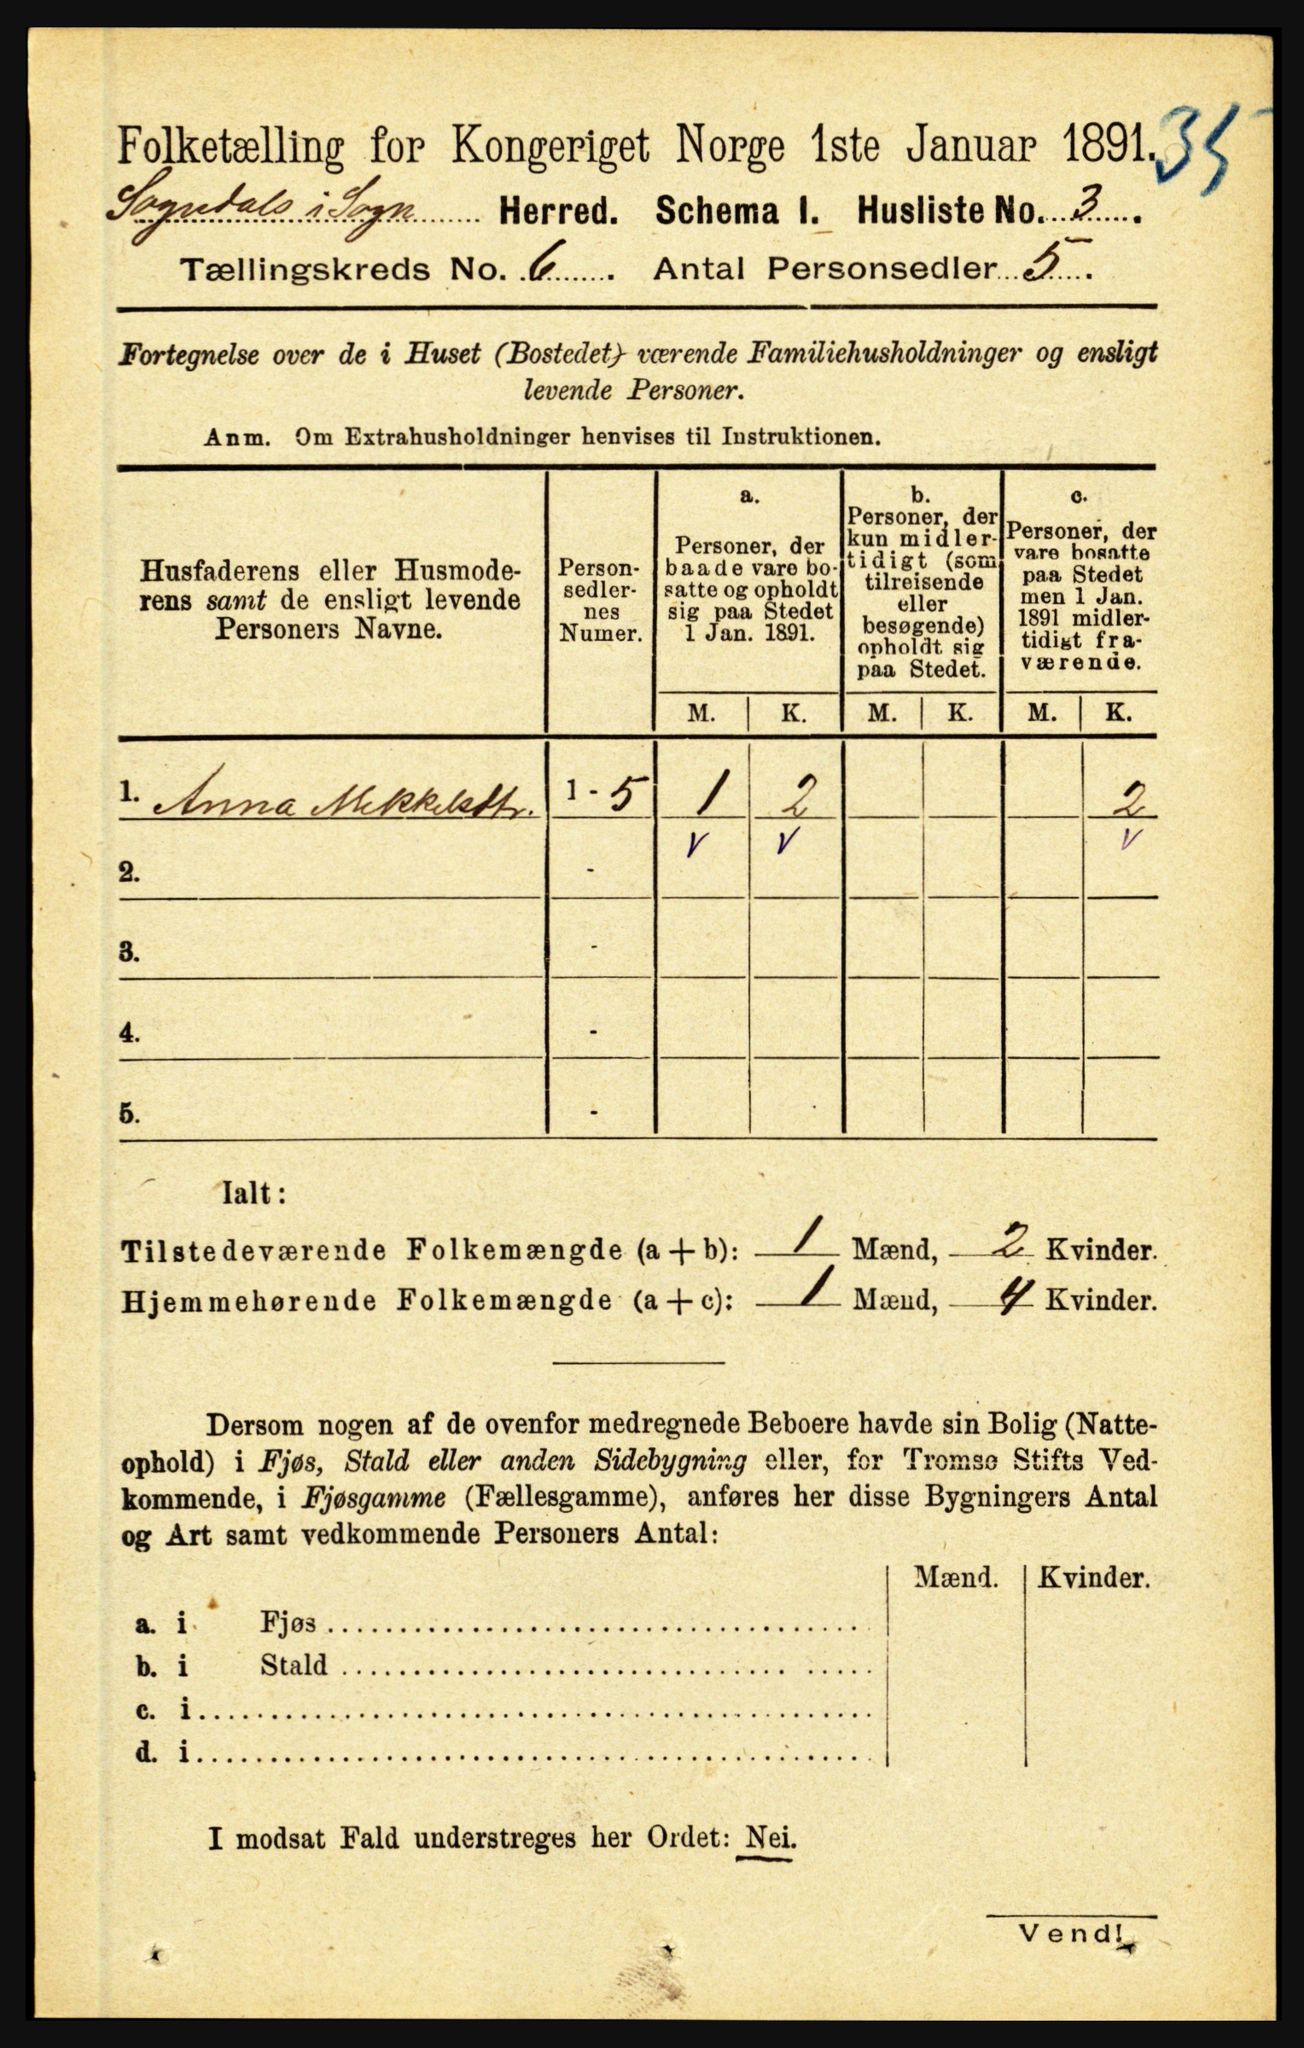 Folketælling for Kongeriget Norge 1ste Januar 1891. 35
Sogndals i Sogn Herred. Schema I. Husliste No. 3.
Tællingskreds No. 6. Antal Personsedler 5.
Fortegnelse over de i Huset (Bostedet) værende Familiehusholdninger og ensligt
levende Personer.
Anm. Om Extrahusholdninger henvises til Instruktionen.
Husfaderens eller Husmode-
rens samt de ensligt levende
Personers Navne.
Person-
sedler-
nes
Numer.
a.
Personer, der
baade vare bo-
satte og opholdt
sig paa Stedet
1 Jan. 1891.
b.
Personer, der
kun midler-
tidigt (som
tilreisende
eller
besøgende)
opholdt sig
paa Stedet.
c.
Personer, der
vare bosatte
paa Stedet
men 1 Jan.
1891 midler-
tidigt fra-
værende.
M. K. M. K. M. K.
1. Anna Mekkelsdtr. 1 - 5 1 2 2
v v v
2. -
3. -
4. -
5. -
Ialt:
Tilstedeværende Folkemængde (a + b): 1 Mænd, 2 Kvinder.
Hjemmehørende Folkemængde (a + c): 1 Mænd, 4 Kvinder.
Dersom nogen af de ovenfor medregnede Beboere havde sin Bolig (Natte-
ophold) i Fjøs, Stald eller anden Sidebygning eller, for Tromsø Stifts Ved-
kommende, i Fjøsgamme (Fællesgamme), anføres her disse Bygningers Antal
og Art samt vedkommende Personers Antal:
Mænd. Kvinder.
a. i Fjøs
b. i Stald
c. i
d. i
I modsat Fald understreges her Ordet: Nei.
Vend!